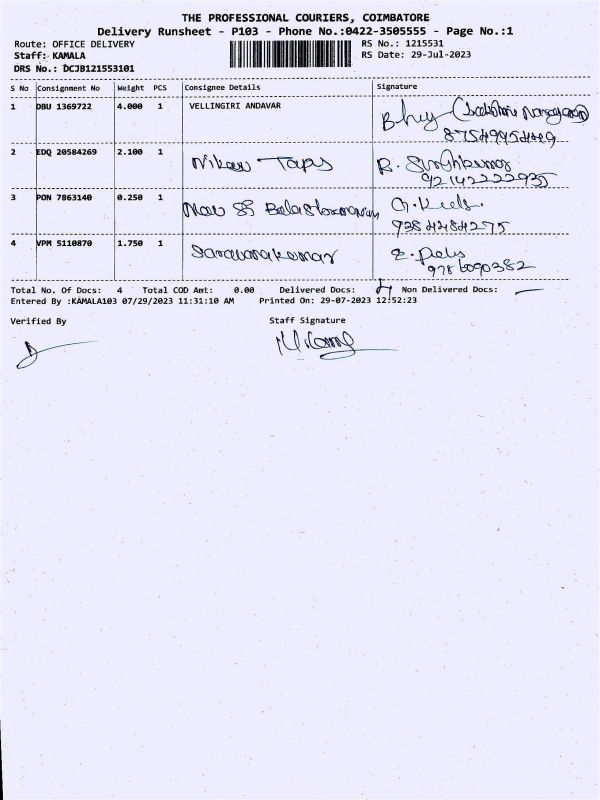 THE PROFESSIONAL COURIERS, COIMBATORE
Delivery Runsheet - P103 - Phone No.:0422-3505555 - Page No.:1
Route: OFFICE DELIVERY RS No.: 1215531
Staff: KAMALA RS Date: 29-Jul-2023
DRS No.: DCJB121553101
S No Consignment No Weight PCS Consignee Details Signature
1 DBU 1369722 4.000 1 VELLINGIRI ANDAVAR
2 EDQ 20584269 2.100 1 Taps
3 PON 7863140 0.250 1
4 VPM 5110870 1.750 1 Saravanakumar
9786090382
Total No. Of Docs: 4 Total COD Amt: 0.00 Delivered Docs: 4 Non Delivered Docs: —
Entered By :KAMALA103 07/29/2023 11:31:10 AM Printed On: 29-07-2023 12:52:23
Verified By Staff Signature